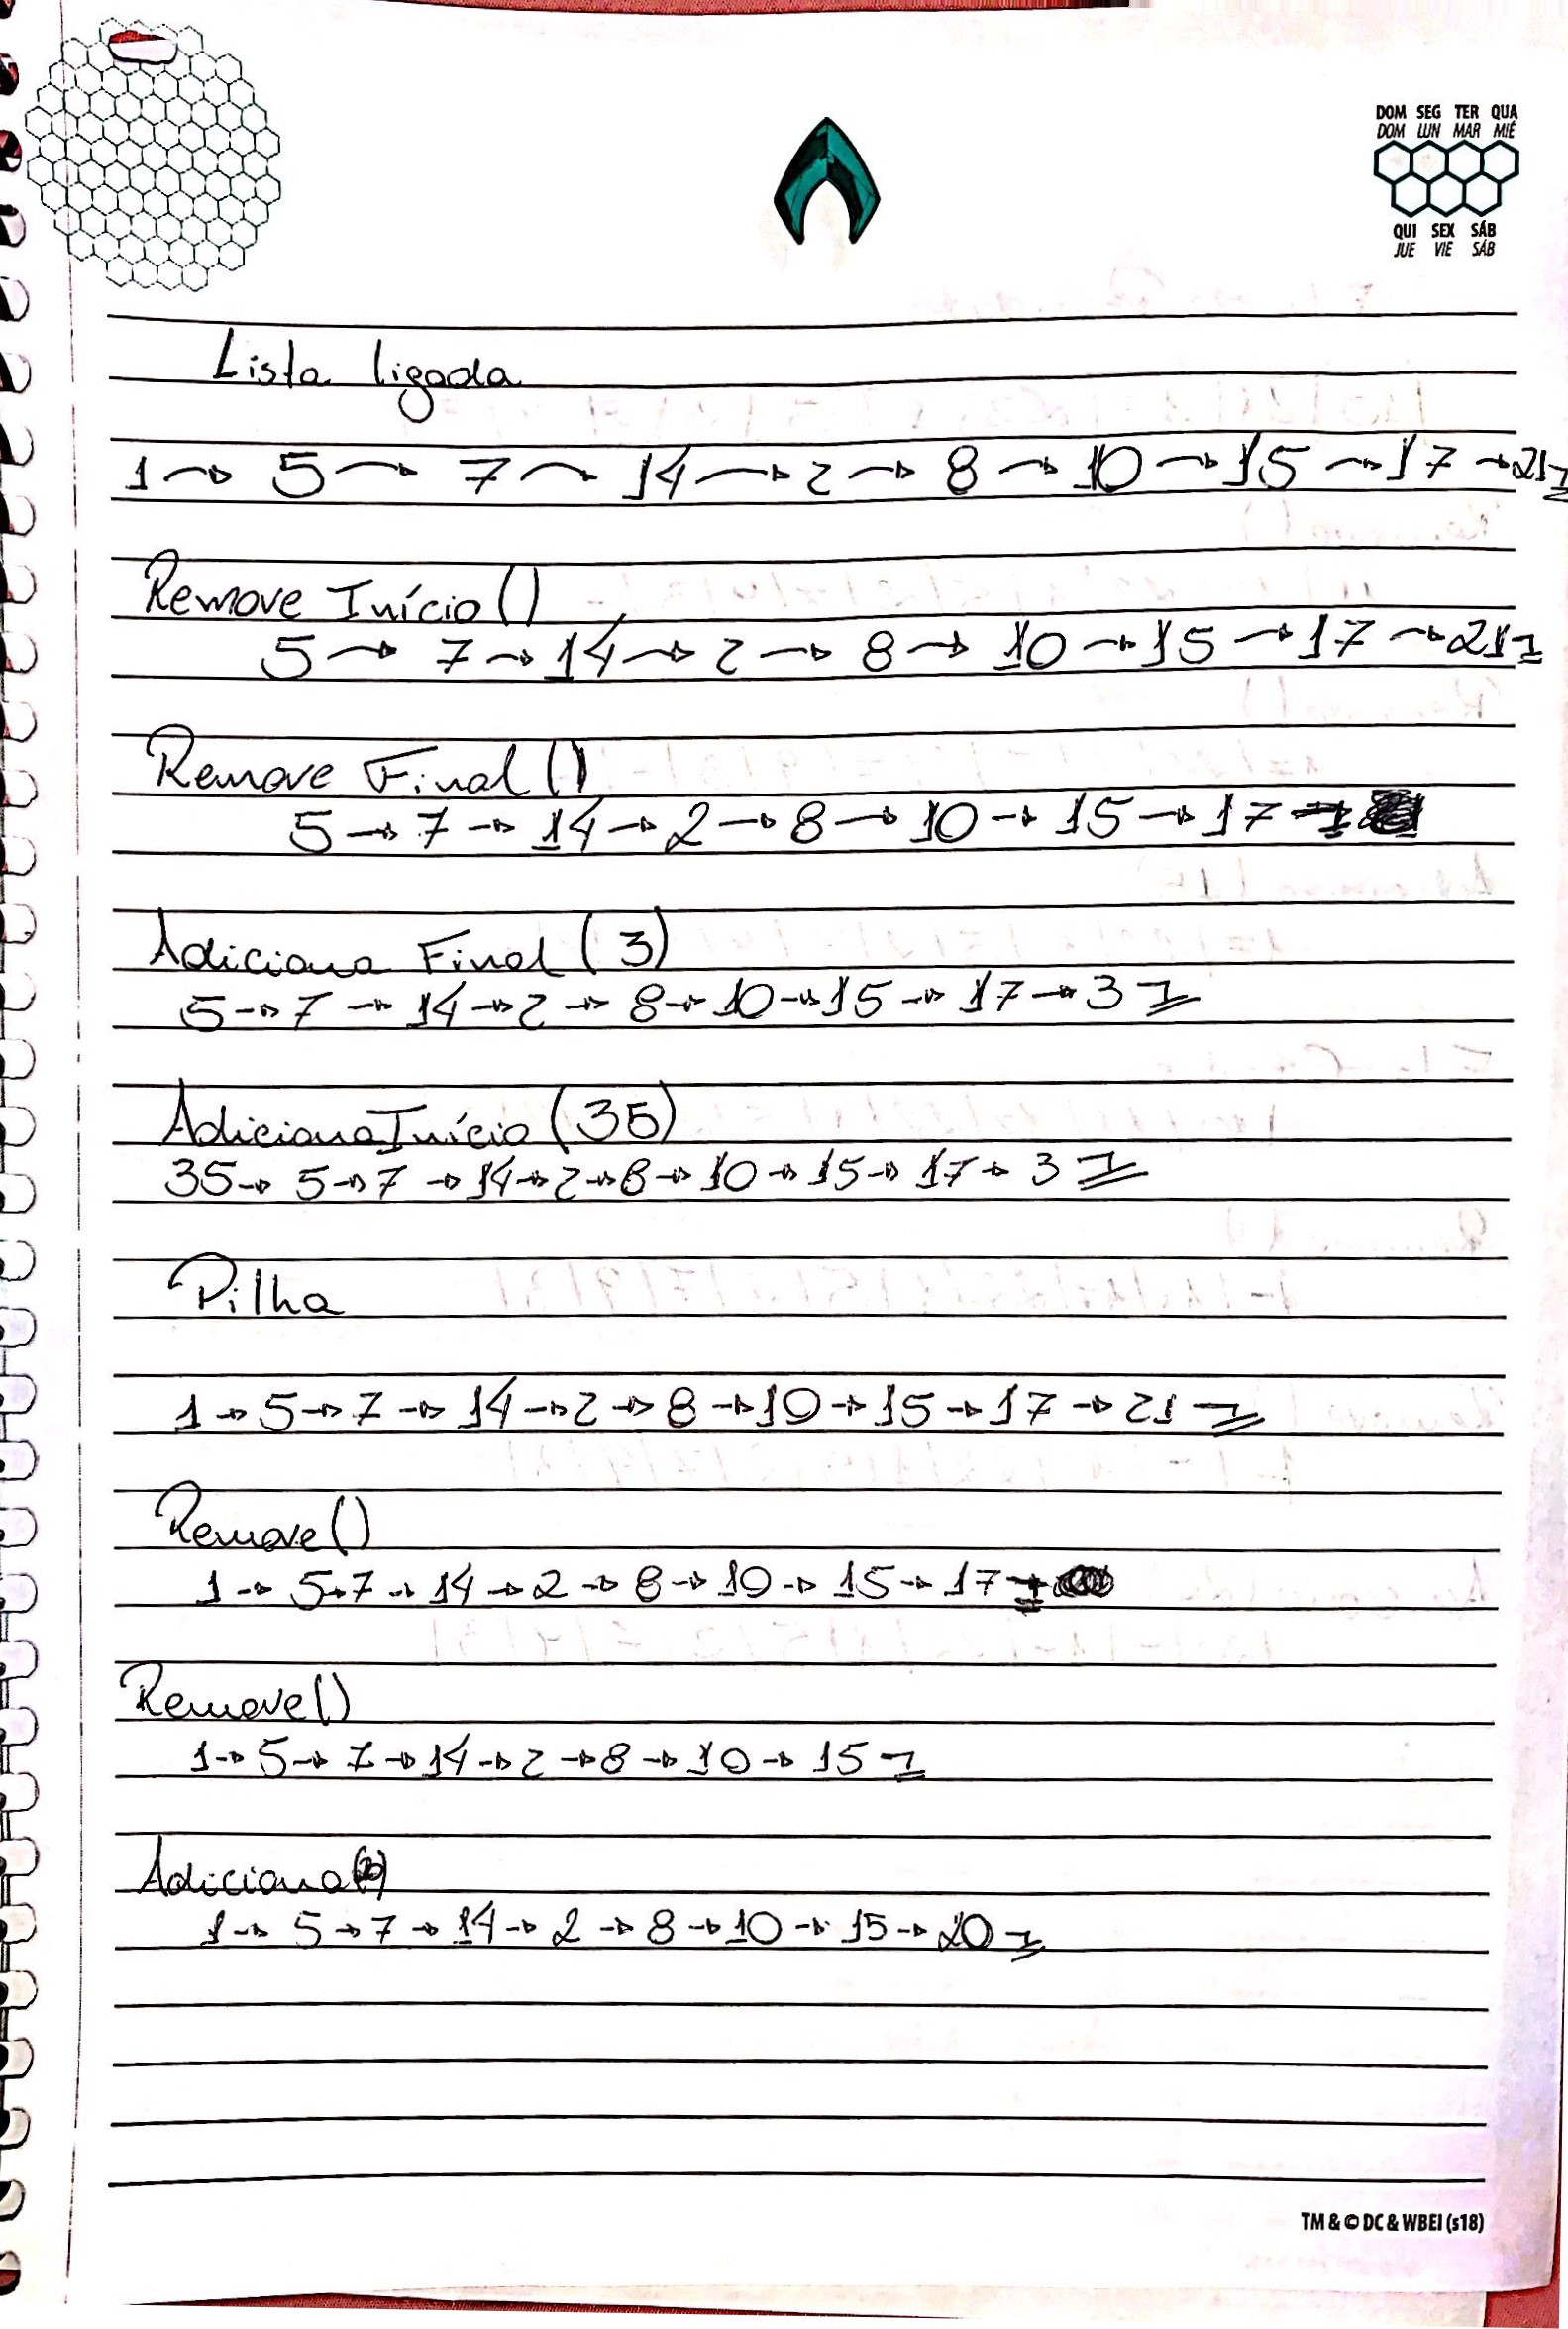 DOM SEG TER QUA
DOM LUN MAR MIÉ
QUI SEX SÁB
JUE VIE SÁB
Lista ligada
1 → 5 → 7 → 14 → 2 → 8 → 10 → 15 → 17 → 21
Remove Início ()
5 → 7 → 14 → 2 → 8 → 10 → 15 → 17 → 21
Remove Final ()
5 → 7 → 14 → 2 → 8 → 10 → 15 → 17
Adiciona Final (3)
5 → 7 → 14 → 2 → 8 → 10 → 15 → 17 → 3
Adiciona Início (35)
35 → 5 → 7 → 14 → 2 → 8 → 10 → 15 → 17 → 3
Pilha
1 → 5 → 7 → 14 → 2 → 8 → 10 → 15 → 17 → 21
Remove()
1 → 5 → 7 → 14 → 2 → 8 → 10 → 15 → 17
Remove()
1 → 5 → 7 → 14 → 2 → 8 → 10 → 15
Adiciona(20)
1 → 5 → 7 → 14 → 2 → 8 → 10 → 15 → 20
TM & © DC & WBEI (s18)